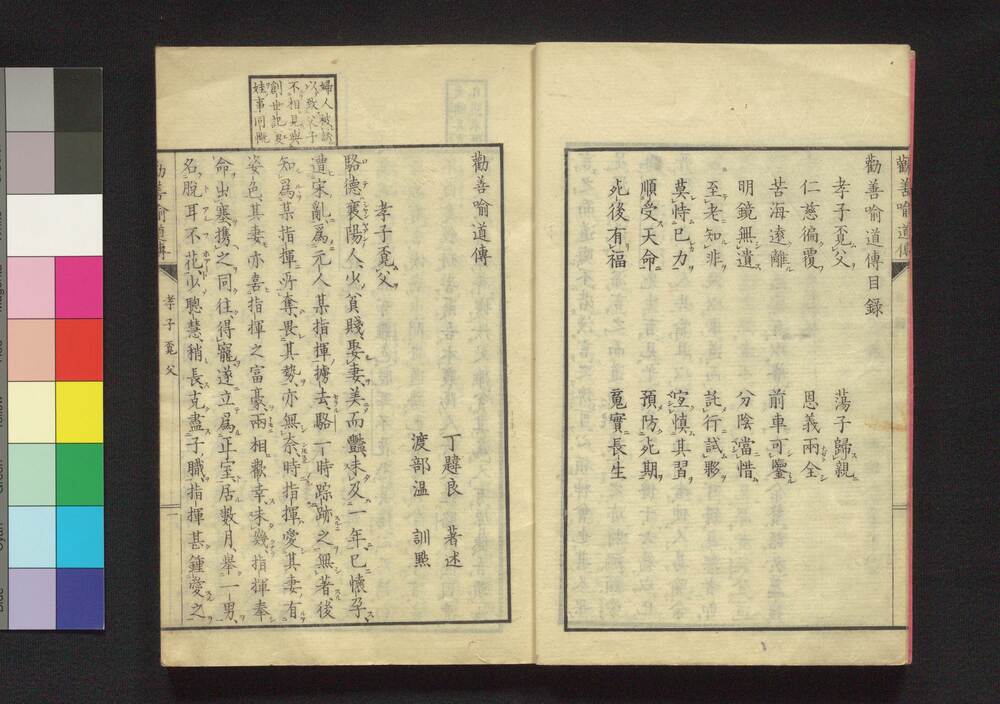 勸善喻道傳
勸善喻道傳目錄
孝子覔父　蕩子歸親
仁慈徧覆　恩義兩全
苦海遠離　前車可鑒
明鏡無遺　分陰當惜
至老知非　託行試夥
莫恃已力　宜慎其習
順受天命　預防死期
死後有福　冤實長生
勸善喻道傳
丁韙良　著述
渡部溫　訓點
孝子覔父
駱德襄陽人少貧賤娶妻美而豔未及一年已懷孕
遭宋亂爲元人某指揮擄去駱一時踪跡之無著後
知爲某指揮所奪畏其勢亦無奈時指揮愛其妻有
姿色其妻亦喜指揮之富豪兩相歡幸未幾指揮奉
命出塞攜之同往得寵遂立爲正室居數月舉一男
名脫耳不花少聰慧稍長克盡子職指揮甚鍾愛之
婦人被誘
以致父子
不相見與
創世記夏
娃事同慨
勸善喻道傳
孝子覔父
一